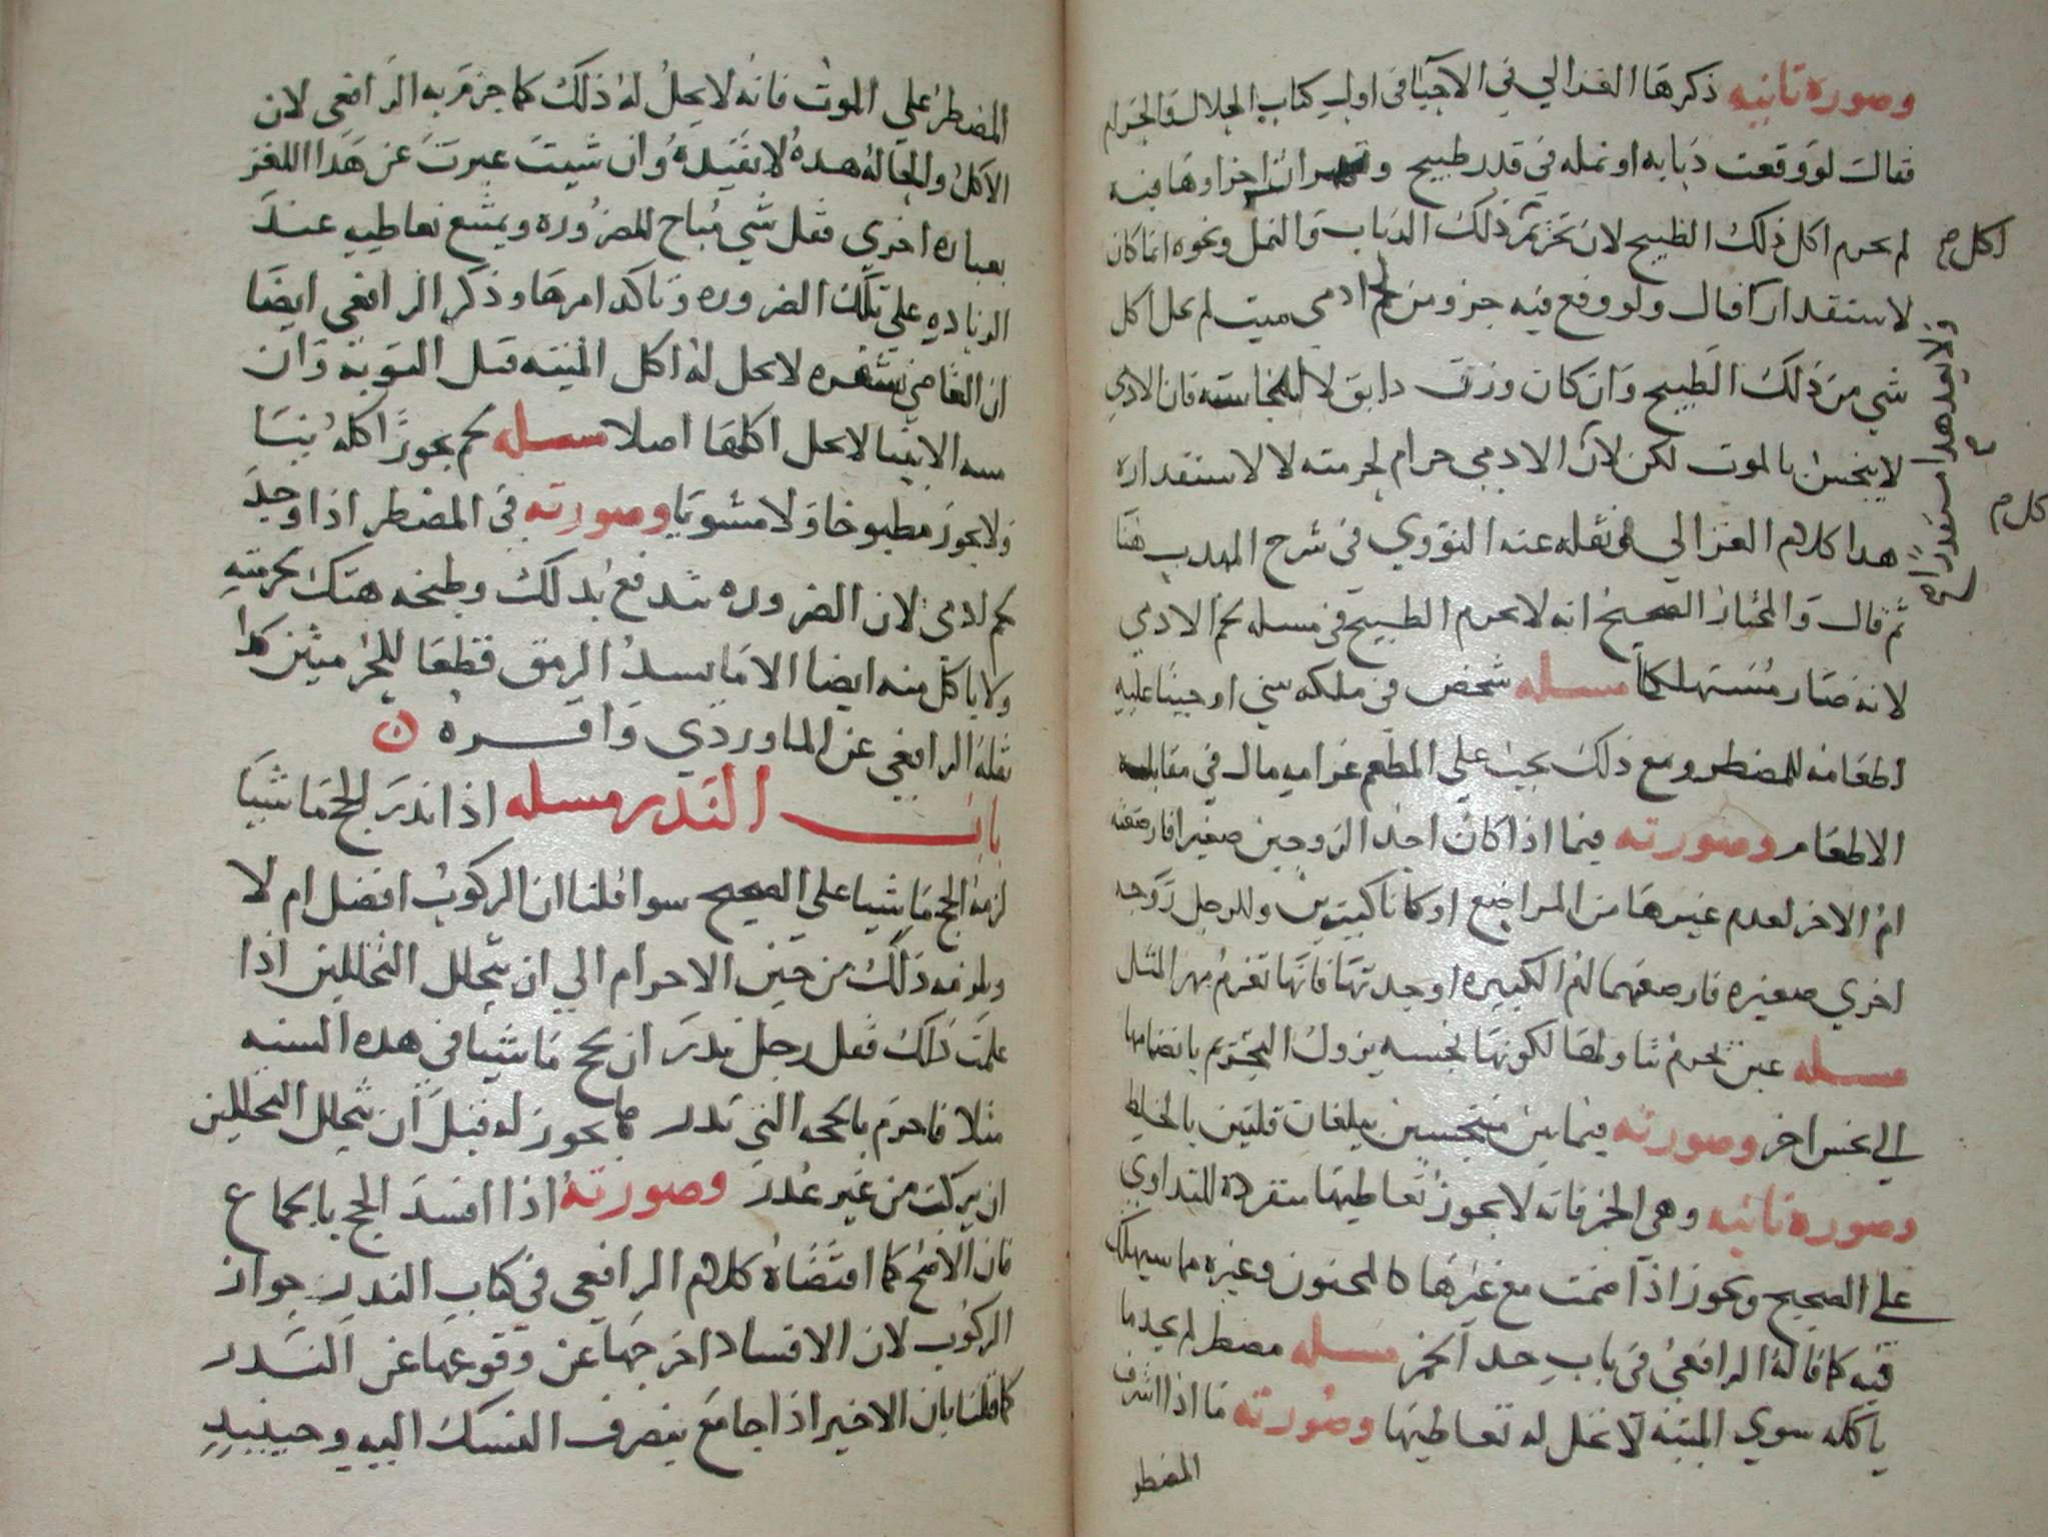 وصوره تانيه ذكرها الغزالي في الاحيا في اول كتاب الحلال والحرام
فقال لو وقعت دبابه او نمله في قدر طبيح و ان اجزاوها فيه
لم يحرم اكل ذلك الطبيح لان تحريم ذلك الدباب والنمل ونحوه انما كان
لاستقدار كا قال ولو وقع فيه جزو من لحم ادمي ميت لم يحل اكل
شي من ذلك الطبيح وان كان وزن دانق لا لنجاسته فان الادمي
لا ينجس بالموت لكن لان الادمي حرام لحرمته لا لاستقداره
هدا كلام الغزالي نقله عنه النووي في شرح المهدب هنا
ثم قال والمختار الصحيح انه لا يحرم الطبيح في مسله لحم الادمي
لانه صار مستهلكا مسله شخص في ملكه شي اوجبنا عليه
اطعامه للمضطر ومع ذلك يجب علي المطعم غرامه مال في مقابله
الاطعام وصورته فيما اذا كان احد الزوجين صغيرا فارضعته
ام الاخر لعدم غيرها من المراضع او كانا كبيرين وللرجل زوجه
اخري صغيره فارضعتها ام الكبيره او جدتها فانها تغرم مهر المثل
مسله عين يحرم تناولها لكونها نجسه يزول التحريم بانضمامها
الي نجس اخر وصورته فيما بين متنجسين يبلغان قلتين بالخلط
وصوره تانيه وهي الخمر فانه لا يجوز تعاطيها منفرده للتداوي
علي الصحيح ويجوز اذا ضمت مع غيرها كالمعجون وغيره مما يستهلك
فيه كما قاله الرافعي في باب حد الخمر مسله مضطر لم يجد ما
ياكله سوي الميته لا تحل له تعاطيها وصورته ما اذا اشرف
المضطر
اكل م
ولا يعد هدا استقدارا
كل م
المضطر علي الموت فانه لا يحل له ذلك كما جزم به الرافعي لان
الاكل والحاله هده لا يفيده وان شيت عبرت عن هدا اللغز
بعباره اخري فقل شي مباح للضروره ويمتنع تعاطيه عند
الزياده علي تلك الضروره وتاكد امرها وذكر الرافعي ايضا
ان العاصي بسفره لا يحل له اكل الميته قبل التوبه وان
ميته الانبيا لا يحل اكلها اصلا مسله لحم يجوز اكله نيسا
ولا يجوز مطبوخا ولا مشويا وصورته في المضطر اذا وجد
لحم ادمي لان الضروره تندفع بدلك وطبخه هتك لحرمته
ولا ياكل منه ايضا الا ما يسد الرمق قطعا للحرمتين كدا
نقله الرافعي عن الماوردي واقره ن
باب النذر مسله اذا ندر الحج ماشيا
لزمه الحج ماشيا علي الصحيح سوا قلنا ان الركوب افضل ام لا
ويلزمه ذلك من حين الاحرام الي ان يتحلل التحللين اذا
علمت ذلك فقل رجل ندر ان يحج ماشيا في هده السنه
مثلا فاحرم بالحجه التي ندر يجوز له قبل ان يتحلل التحللين
ان يركب من غير عدر وصورته اذا افسد الحج بالجماع
فان الاصح كما اقتضاه كلام الرافعي في كتاب الندر جواز
الركوب لان الافساد اخرجها عن وقوعها عن الندر
كما قلنا بان الاخير اذا جامع ينصرف النسك اليه وحينيد